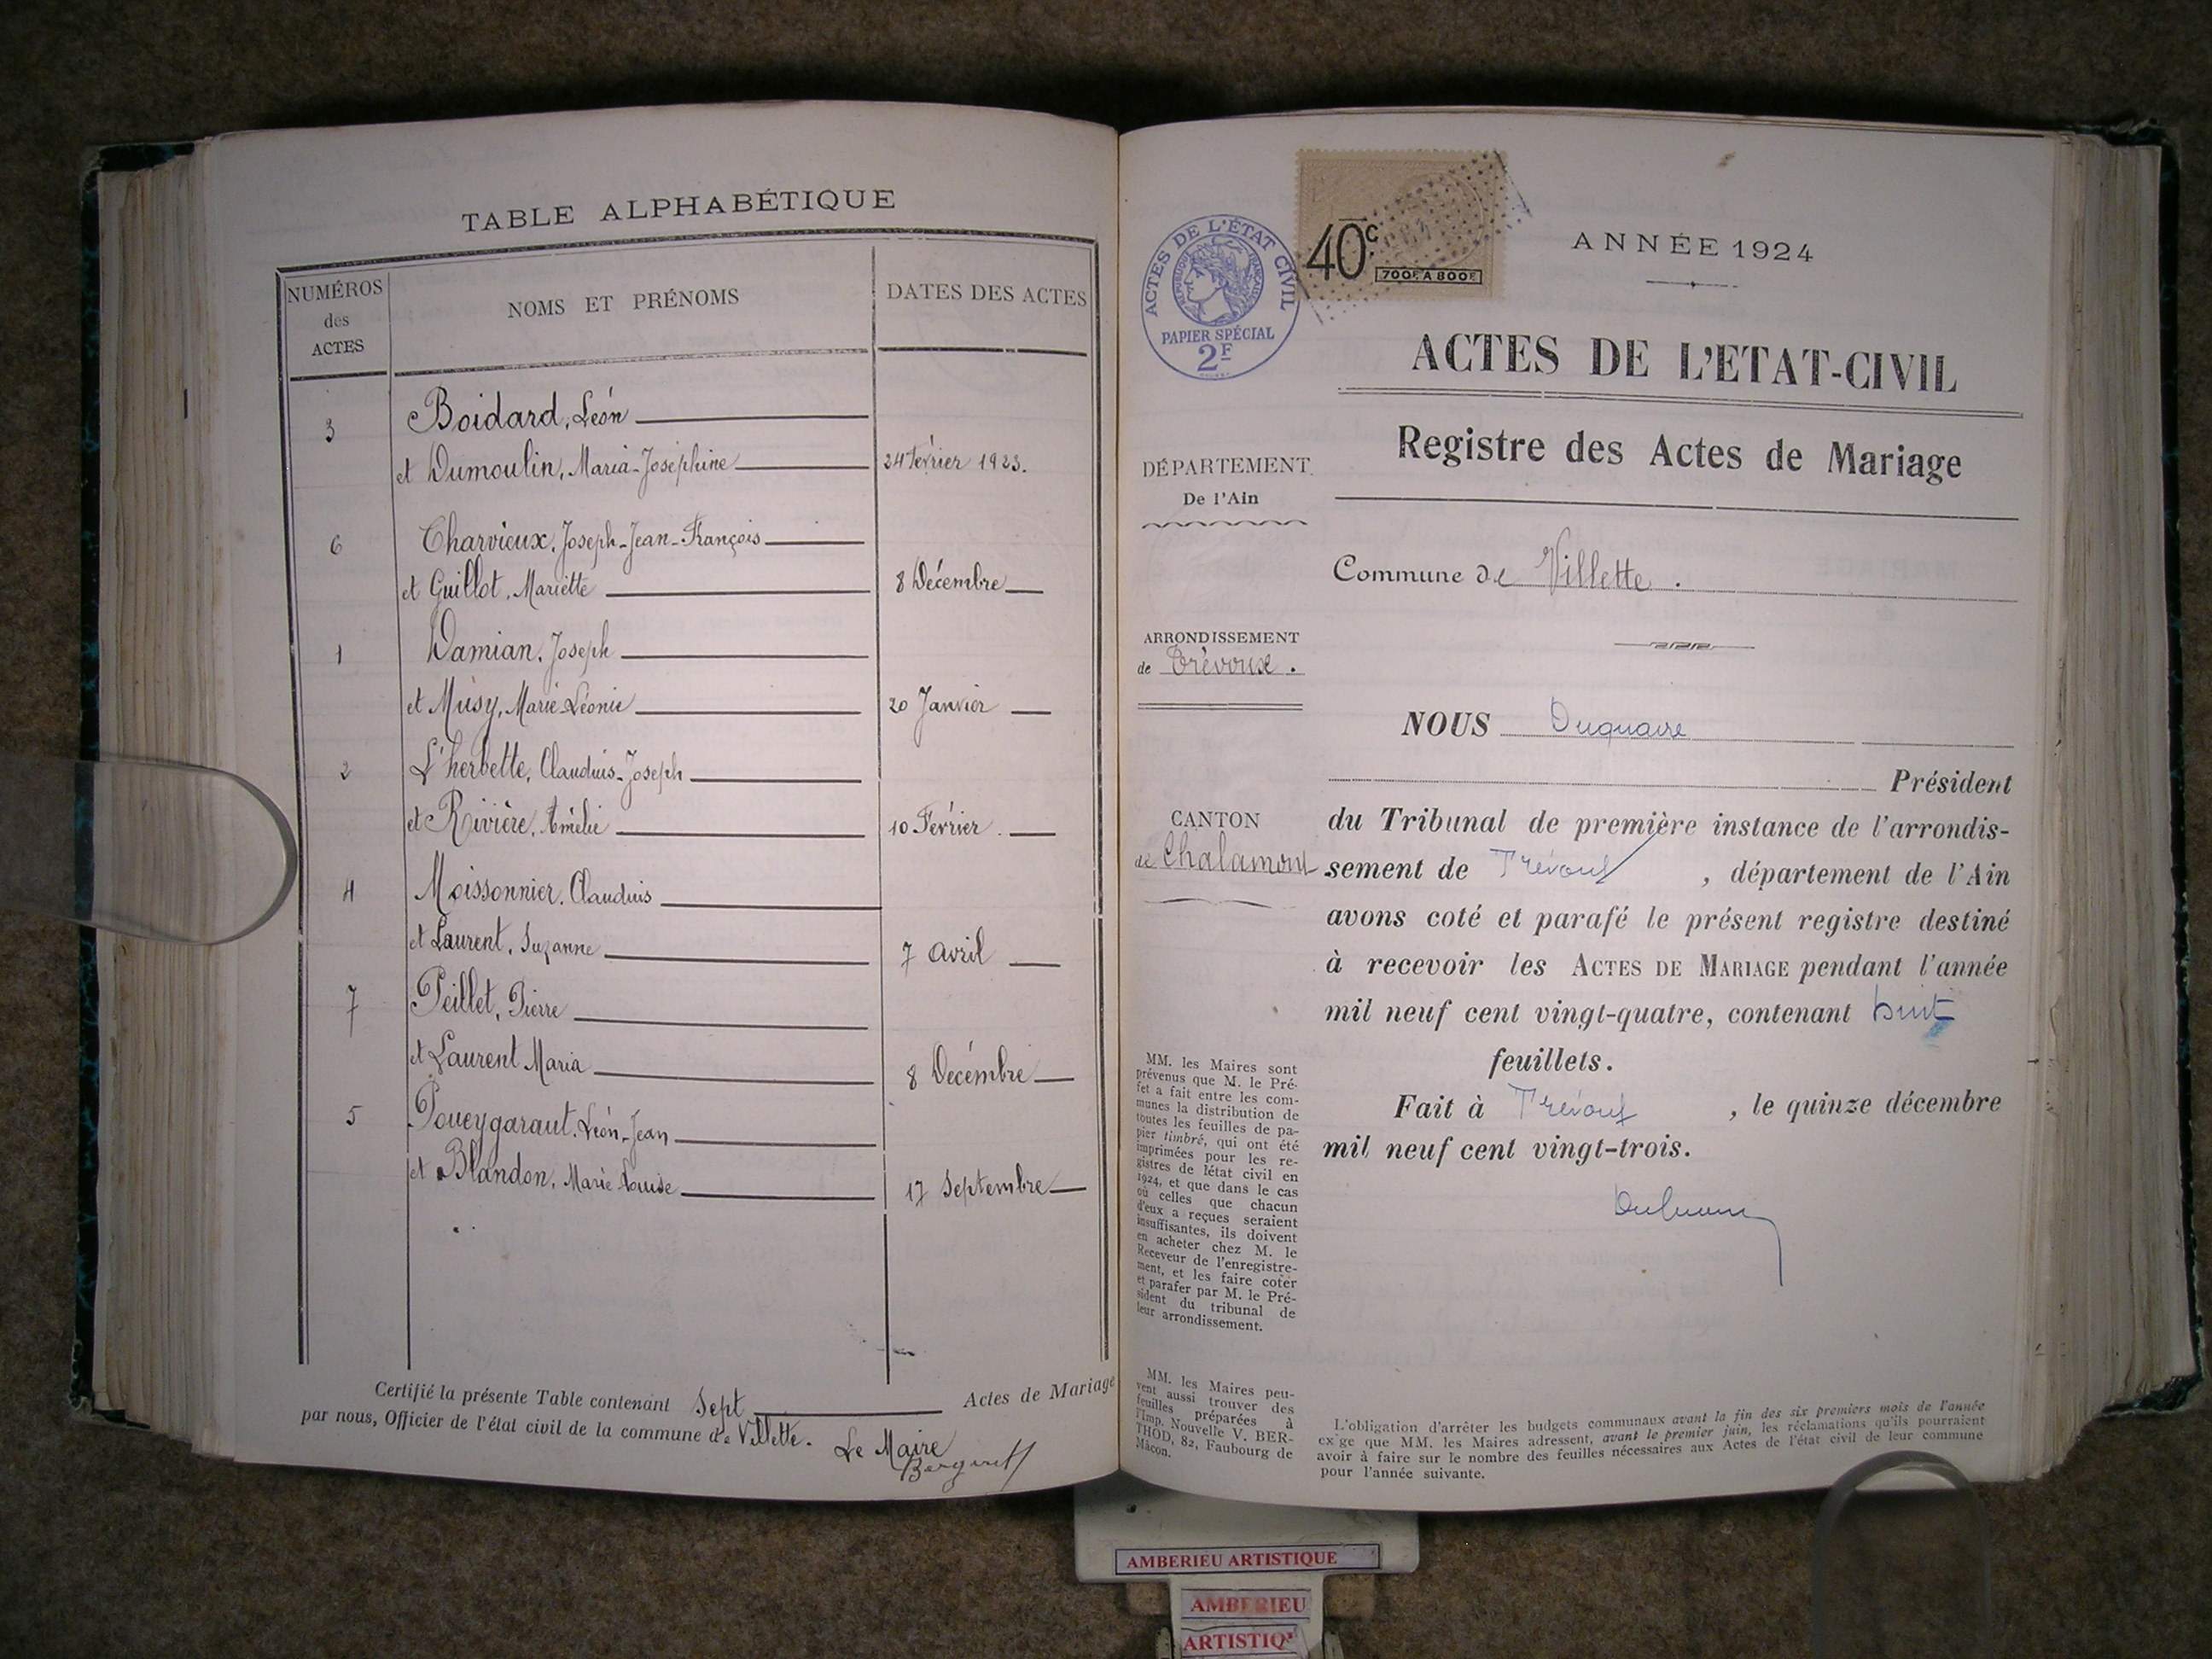 TABLE ALPHABÉTIQUE
NUMÉROS
des
ACTES
NOMS ET PRÉNOMS
DATES DES ACTES
3
Boidard, Léon
et Dumoulin, Maria-Joséphine
24 février 1923.
6
Charvieux, Joseph-Jean-François
et Guillot, Mariette
8 Décembre
1
Damian, Joseph
et Musy, Marie-Léonie
20 Janvier
2
L'herbette, Claudius-Joseph
et Rivière, Amélie
10 Février
4
Moissonnier, Claudius
et Laurent, Suzanne
7 avril
7
Peillet, Pierre
et Laurent Maria
8 Décembre
5
Poueygaraut, Léon-Jean
et Blandon, Marie Louise
17 Septembre
Certifié la présente Table contenant Sept Actes de Mariage
par nous, Officier de l'état civil de la commune de Villette.
Le Maire
ACTES DE L'ÉTAT CIVIL
RÉPUBLIQUE FRANÇAISE
PAPIER SPÉCIAL
2F
40c
700F. A 800F.
ANNÉE 1924
ACTES DE L'ETAT-CIVIL
Registre des Actes de Mariage
DÉPARTEMENT
De l'Ain
Commune de Villette.
ARRONDISSEMENT
de Trévoux.
CANTON
de Chalamont
NOUS Duquaire
Président
du Tribunal de première instance de l'arrondis-
sement de Trévoux, département de l'Ain
avons coté et parafé le présent registre destiné
à recevoir les ACTES DE MARIAGE pendant l'année
mil neuf cent vingt-quatre, contenant huit
feuillets.
Fait à Trévoux, le quinze décembre
mil neuf cent vingt-trois.
MM. les Maires sont
prévenus que M. le Pré-
fet a fait entre les com-
munes la distribution de
toutes les feuilles de pa-
pier timbré, qui ont été
imprimées pour les re-
gistres de l'état civil en
1924, et que dans le cas
où celles que chacun
d'eux a reçues seraient
insuffisantes, ils doivent
en acheter chez M. le
Receveur de l'enregistre-
ment, et les faire coter
et parafer par M. le Pré-
sident du tribunal de
leur arrondissement.
MM. les Maires peu-
vent aussi trouver des
feuilles préparées à
l'Imp. Nouvelle V. BER-
THOD, 82, Faubourg de
Mâcon.
L'obligation d'arrêter les budgets communaux avant la fin des six premiers mois de l'année
exige que MM. les Maires adressent, avant le premier juin, les réclamations qu'ils pourraient
avoir à faire sur le nombre des feuilles nécessaires aux Actes de l'état civil de leur commune
pour l'année suivante.
AMBERIEU ARTISTIQUE
AMBERIEU
ARTISTIQ